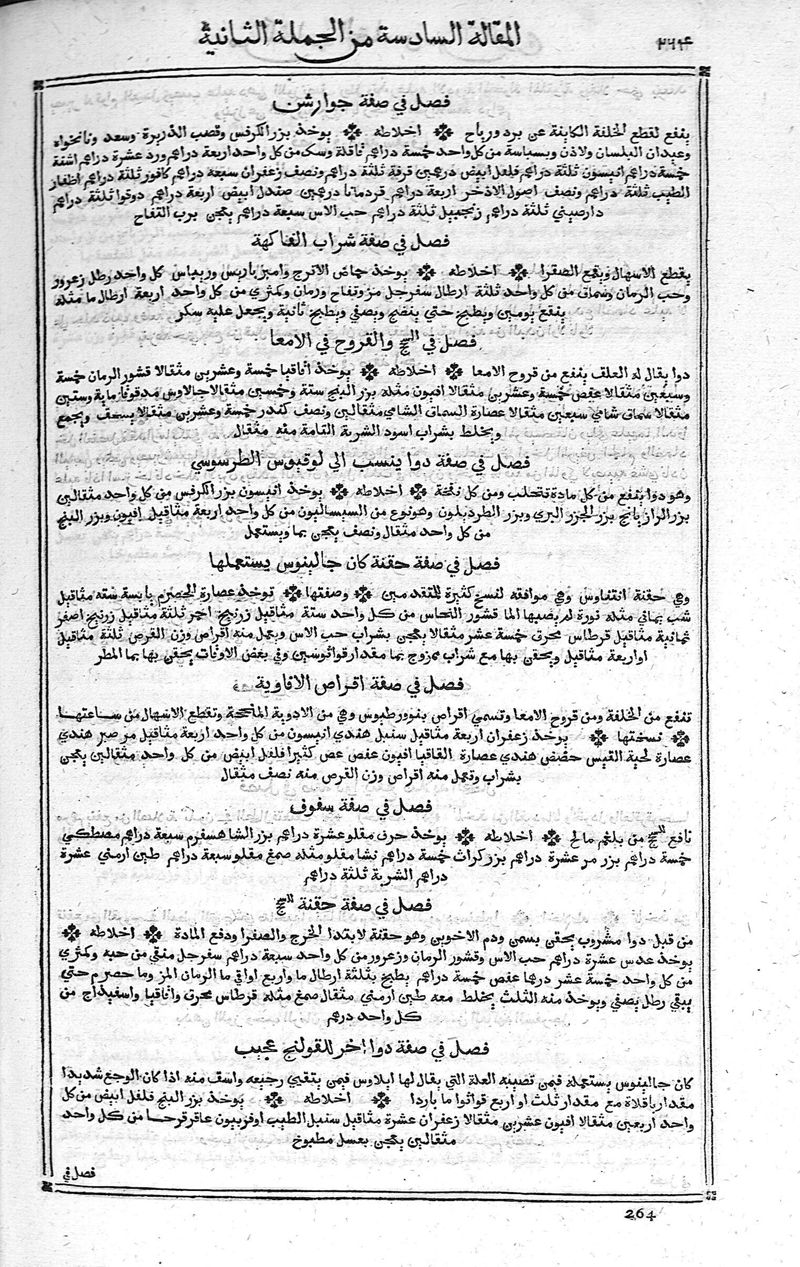 ٢٦٤
المقالة السادسة من الجملة الثانية
فصل في صفة جوارشن
ينفع لقطع الخلفة الكاينة عن برد ورياح اخلاطه يوخذ بزر الكرفس وقصب الذريرة وسعد ونانخواه
وعيدان البلسان ولاذن وبسباسة من كل واحد خمسة دراهم قاقلة وسك من كل واحد اربعة دراهم ورد عشرة دراهم اشنة
خمسة دراهم انيسون ثلثة دراهم فلفل ابيض درهمين قرفة ثلثة دراهم ونصف زعفران سبعة دراهم كافور ثلثة دراهم اظفار
الطيب ثلثة دراهم ونصف اصول الاذخر اربعة دراهم قردمانا درهمين صندل ابيض اربعة دراهم دوقوا ثلثة دراهم
دارصيني ثلثة دراهم زنجبيل ثلثة دراهم حب الاس سبعة دراهم يعجن برب التفاح
فصل في صفة شراب الفاكهة
يقطع الاسهال ويقمع الصفرا اخلاطه يوخذ حماض الاترج وامبرباريس وريباس كل واحد رطل زعرور
وحب الرمان وسماق من كل واحد ثلثة ارطال سفرجل مز وتفاح ورمان وكمثري من كل واحد اربعة ارطال ما مثله
ينقع يومين ويطبخ حتي ينضج ويصفي ويطبخ ثانية ويجعل عليه سكر
فصل في السحج والقروح في الامعا
دوا يقال له العلف ينفع من قروح الامعا اخلاطه يوخذ اقاقيا خمسة وعشرين مثقالا قشور الرمان خمسة
وسبعين مثقالا عفص خمسة وعشرين مثقالا افيون مثله بزر البنج ستة وخمسين مثقالا جالاوس مدقوقا ماية وستين
مثقالا سماق شامي سبعين مثقالا عصارة السماق الشامي مثقالين ونصف كندر خمسة وعشرين مثقالا يسحف ويجمع
ويخلط بشراب اسود الشربة التامة منه مثقال
فصل في صفة دوا ينسب الي لوقيوس الطرسوسي
وهو دوا ينفع من كل مادة تتحلب ومن كل نفخة اخلاطه يوخذ انيسون بزر الكرفس من كل واحد مثقالين
بزر الرازيانج بزر الجزر البري وبزر الطرديلون وهو نوع من السيساليون من كل واحد اربعة مثاقيل افيون وبزر البنج
من كل واحد مثقال ونصف يعجن بما ويستعمل
فصل في صفة حقنة كان جالينوس يستعملها
وهي حقنة انتفاوس وهي موافقه لنسخ كثيرة للتقدمين وصفتها توخذ عصارة الحصرم يابسة سته مثاقيل
شب يماني مثله نورة لم يصبها الما قشور النحاس من كل واحد ستة مثاقيل زرنيخ احمر ثلثة مثاقيل زرنيخ اصفر
ثمانية مثاقيل قرطاس محرق خمسة عشر مثقالا يعجن بشراب حب الاس ويعمل منه اقراص وزن القرص ثلثة مثاقيل
او اربعة مثاقيل ويحقن بها مع شراب ممزوج بما مقدار قواثوسين وفي بعض الاوقات يحقن بها بما المطر
فصل في صفة اقراص الافاوية
تنفع من الخلفة ومن قروح الامعا وتسمي اقراص بنوورطبوس وهي من الادوية الملتحمة وتقطع الاسهال من ساعتها
نسختها يوخذ زعفران اربعة مثاقيل سنبل هندي انيسون من كل واحد اربعة مثاقيل مر صبر هندي
عصارة لحية التيس حضض هندي عصارة القاقيا افيون عفص عض كثيرا فلفل ابيض من كل واحد مثقالين يعجن
بشراب وتعمل منه اقراص وزن القرص منه نصف مثقال
فصل في صفة سفوف
نافع للسحج من بلغم مالح اخلاطه يوخذ حرف مقلو عشرة دراهم بزر الشاهسفرم سبعة دراهم مصطكي
خمسة دراهم بزر مر عشرة دراهم بزر كراث خمسة دراهم نشا مقلو مثله صمغ مقلو سبعة دراهم طين ارمني عشرة
دراهم الشربة ثلثة دراهم
فصل في صفة حقنة للسحج
من قبل دوا مشروب يحقن بسمن ودم الاخوين وهو حقنة لابتدا الخرج والصفرا ودفع المادة اخلاطه
يوخذ عدس عشرة دراهم حب الاس وقشور الرمان وزعرور من كل واحد سبعة دراهم سفرجل منقي من حبه وكمثري
من كل واحد خمسة عشر درهما عفص خمسة دراهم يطبخ بثلثة ارطال ما واربع اواقي ما الرمان المز وما حصرم حتي
يبقي رطل يصفي ويوخذ منه الثلث يخلط معه طين ارمني مثقال صمغ مثله قرطاس محرق واقاقيا واسفيداج من
كل واحد درهم
فصل في صفة دوا اخر للقولنج عجيب
كان جالينوس يستعمله فيمن تصيبه العلة التي يقال لها ايلاوس فيمن يتقيي رجيعه واسف منه اذا كان الوجع شديدا
مقدار باقلاة مع مقدار ثلث او اربع قواثوا ما باردا اخلاطه يوخذ بزر البنج فلفل ابيض من كل
واحد اربعين مثقالا افيون عشرين مثقالا زعفران عشرة مثاقيل سنبل الطيب اوفربيون عاقرقرحا من كل واحد
مثقالين يعجن بعسل مطبوخ
فصل في
264